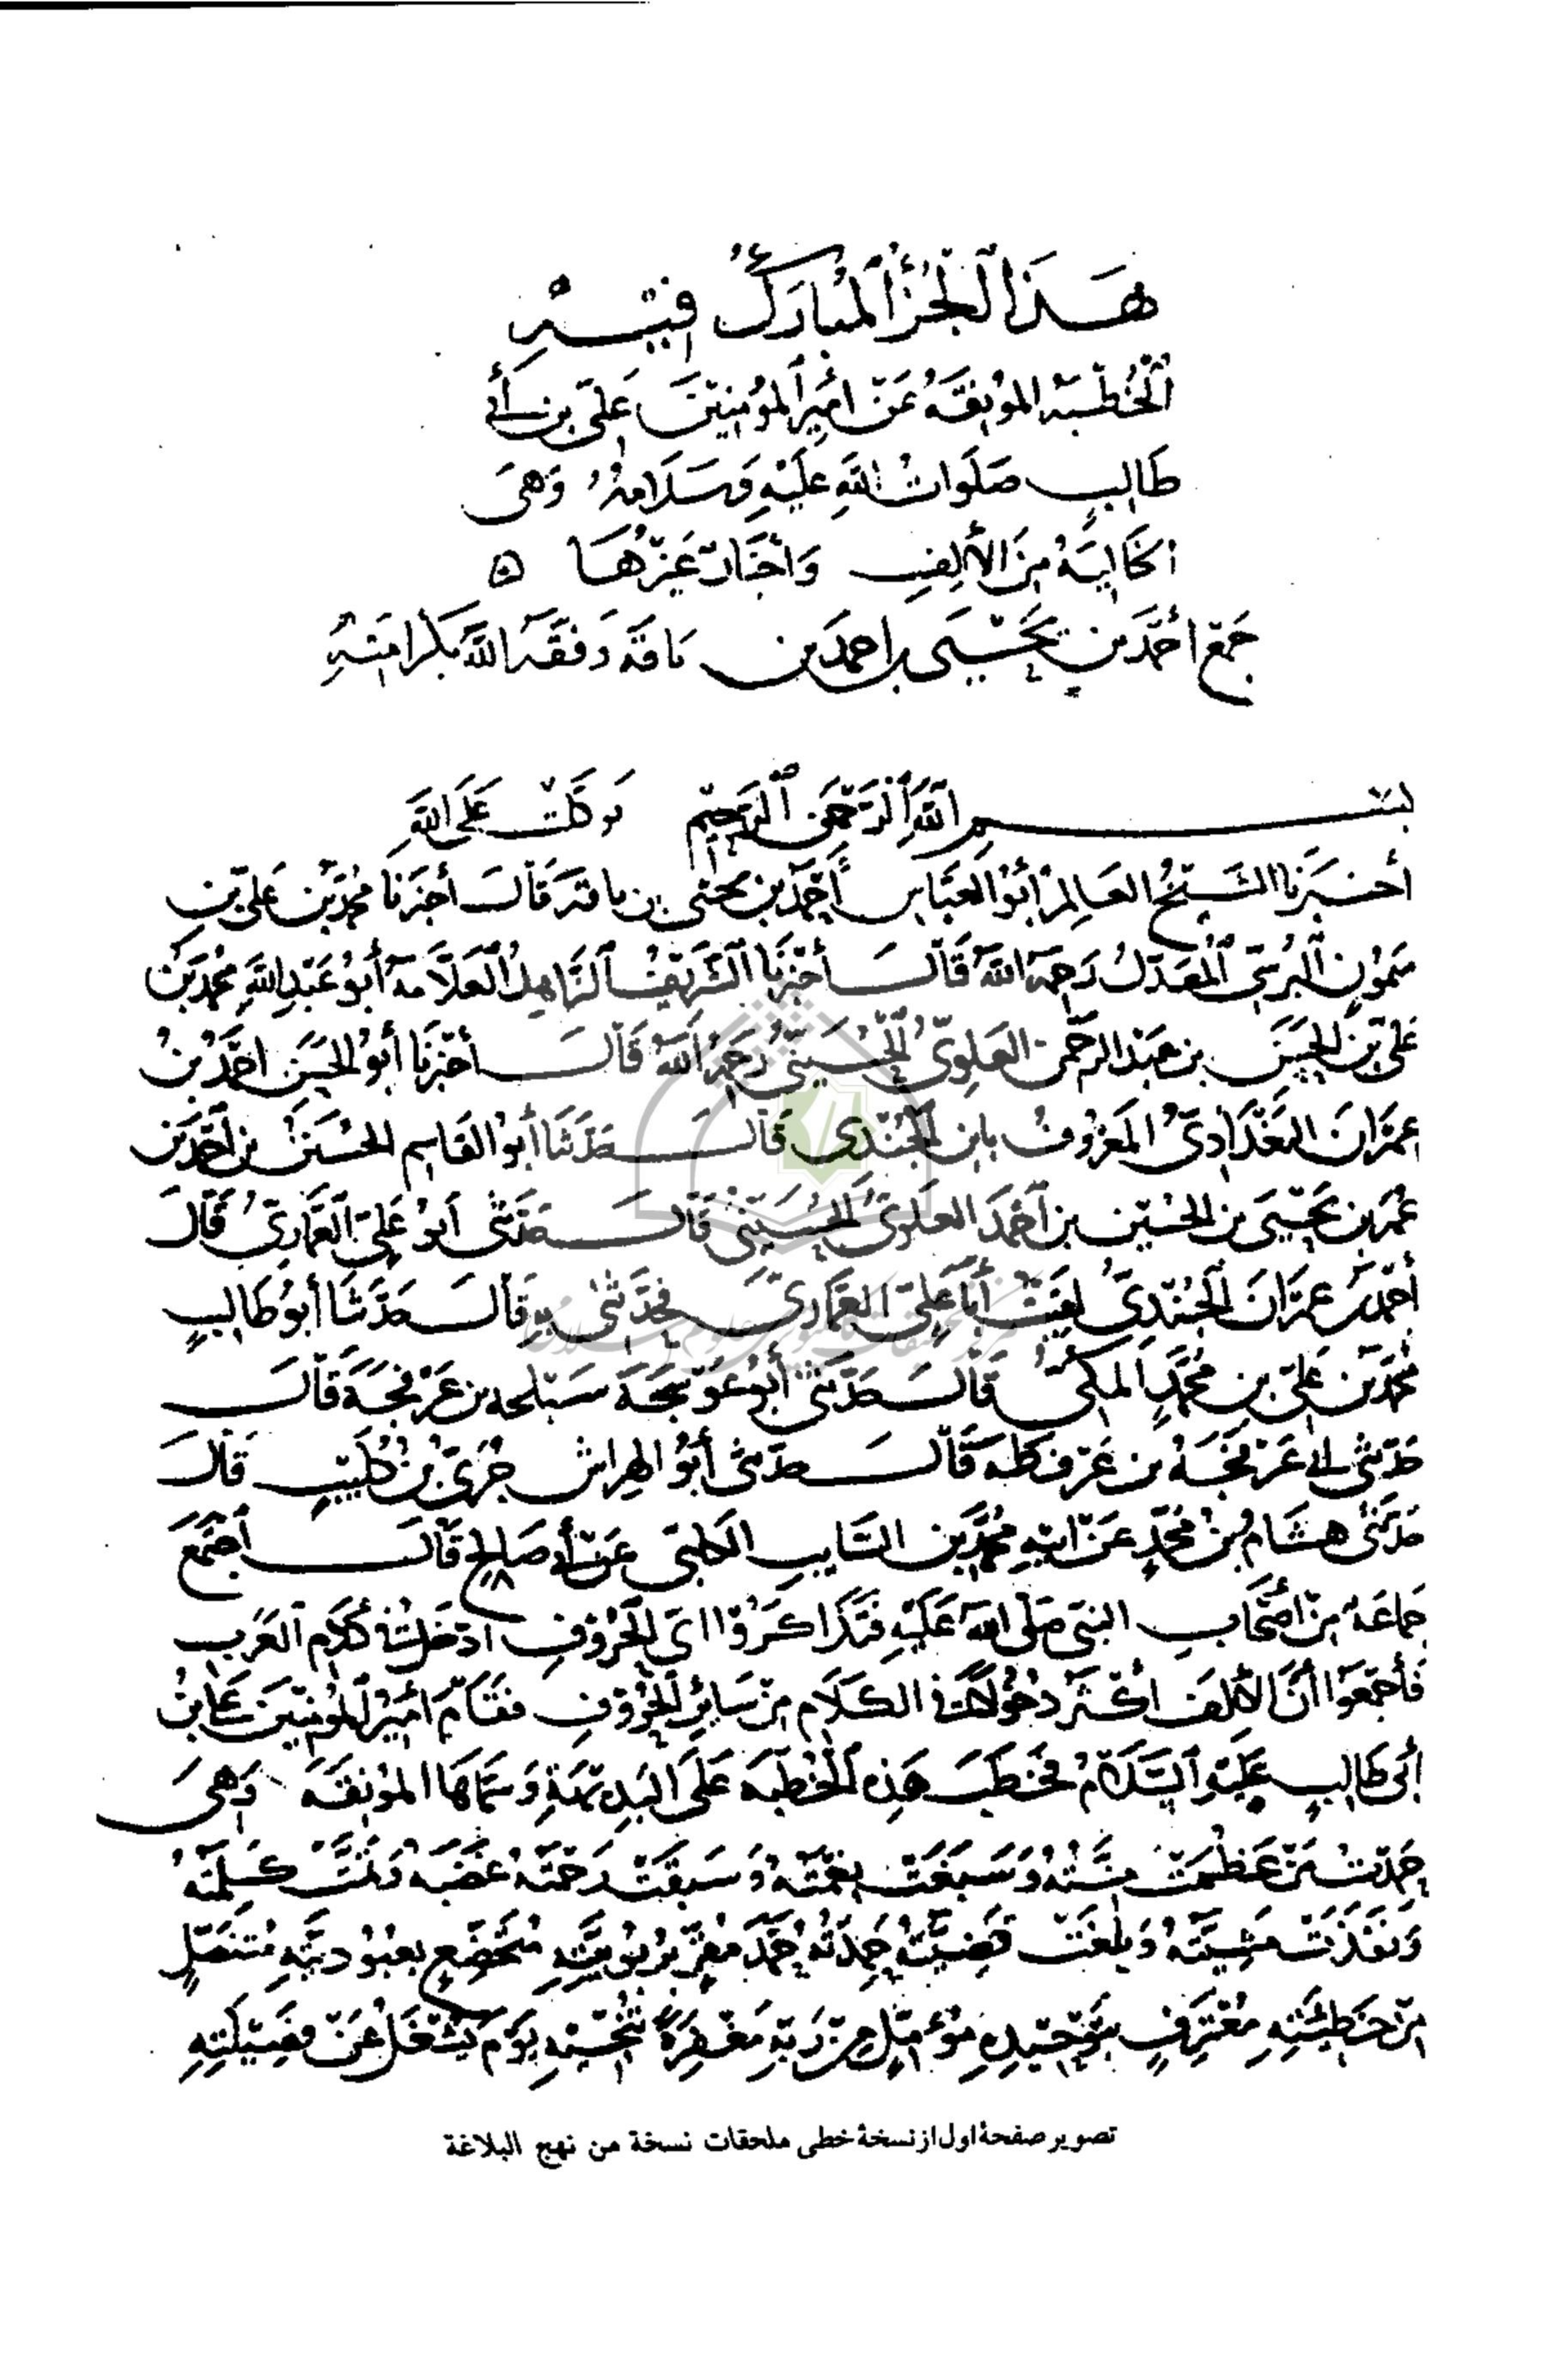 هَذَا الْجُزْءُ الْمُبَارَكُ فِيهِ
الْخُطْبَةُ الْمُونِقَةُ عَنْ أَمِيرِ الْمُؤْمِنِينَ عَلِيِّ بْنِ أَبِي
طَالِبٍ صَلَوَاتُ اللَّهِ عَلَيْهِ وَسَلَامُهُ وَهِيَ
الْخَالِيَةُ مِنَ الْأَلِفِ وَأَخْبَارٌ غَيْرُهَا ه
جَمْعُ أَحْمَدَ بْنِ يَحْيَى بن أَحْمَدَ بْنِ نَاقَةَ وَفَّقَهُ اللَّهُ بِكَرَامَتِهِ
بِسْمِ اللَّهِ الرَّحْمَنِ الرَّحِيمِ تَوَكَّلْتُ عَلَى اللَّهِ
أَخْبَرَنَا الشَّيْخُ الْعَالِمُ أَبُو الْعَبَّاسِ أَحْمَدُ بْنُ يَحْيَى بن نَاقَةَ قَالَ أَخْبَرَنَا مُحَمَّدُ بْنُ عَلِيِّ بْنِ
مَيْمُونٍ النَّرْسِيُّ الْمُعَدَّلُ رَحِمَهُ اللَّهُ قَالَ أَخْبَرَنَا الشَّرِيفُ الزَّاهِدُ الْعَلَّامَةُ أَبُو عَبْدِ اللَّهِ مُحَمَّدُ بْنُ
عَلِيِّ بْنِ الْحَسَنِ بْنِ عَبْدِ الرَّحْمَنِ الْعَلَوِيُّ الْحُسَيْنِيُّ رَحِمَهُ اللَّهُ قَالَ أَخْبَرَنَا أَبُو الْحَسَنِ أَحْمَدُ بْنُ
عِمْرَانَ الْبَغْدَادِيُّ الْمَعْرُوفُ بِابْنِ الْجُنْدِيِّ قَالَ حَدَّثَنَا أَبُو الْقَاسِمِ الْحَسَنُ بْنُ أَحْمَدَ بْنِ
عُمَرَ بْنِ يَحْيَى بن الْحُسَيْنِ بن أَحْمَدَ الْعَلَوِيُّ الْحُسَيْنِيُّ قَالَ حَدَّثَنِي أَبُو عَلِيٍّ الْعَمَّارِيُّ قَالَ
أَحْمَدُ بْنُ عِمْرَانَ الْجُنْدِيُّ لَقِيتُ أَبَا عَلِيٍّ الْعَمَّارِيَّ فَحَدَّثَنِي بِهِ قَالَ حَدَّثَنَا أَبُو طَالِبٍ
مُحَمَّدُ بْنُ عَلِيِّ بْنِ مُحَمَّدٍ الْمَكِّيُّ قَالَ حَدَّثَنِي أَبُو عَوْسَجَةَ بن عَرْفَجَةَ قَالَ
حَدَّثَنِي أَبِي عَرْفَجَةُ بن عَرْفَطَةَ قَالَ حَدَّثَنِي أَبُو الْهِرَاشِ جُرَيُّ بْنُ كُلَيْبٍ قَالَ
حَدَّثَنِي هِشَامُ بْنُ مُحَمَّدٍ عَنْ أَبِيهِ مُحَمَّدِ بْنِ السَّايِبِ الْكَلْبِيِّ عَنْ أَبِي صَالِحٍ قَالَ اجْتَمَعَ
جَمَاعَةٌ مِنْ أَصْحَابِ النَّبِيِّ صَلَّى اللَّهُ عَلَيْهِ فَتَذَاكَرُوا أَيُّ الْحُرُوفِ أَدْخَلُ فِي كَلَامِ الْعَرَبِ
فَأَجْمَعُوا أَنَّ الْأَلِفَ أَكْثَرُ دُخُولًا فِي الْكَلَامِ مِنْ سَايِرِ الْحُرُوفِ فَقَامَ أَمِيرُ الْمُؤْمِنِينَ عَلِيُّ بْنُ
أَبِي طَالِبٍ عَلَيْهِ السَّلَامُ فَخَطَبَ هَذِهِ الْخُطْبَةَ عَلَى الْبَدِيهَةِ وَسَمَّاهَا الْمُونِقَةَ وَهِيَ
حَمِدْتُ مَنْ عَظُمَتْ مِنَّتُهُ وَسَبَغَتْ نِعْمَتُهُ وَسَبَقَتْ رَحْمَتُهُ غَضَبَهُ وَتَمَّتْ كَلِمَتُهُ
وَنَفَذَتْ مَشِيَّتُهُ وَبَلَغَتْ قَضِيَّتُهُ حَمِدْتُهُ حَمْدَ مُقِرٍّ بِرُبُوبِيَّتِهِ مُتَخَضِّعٍ بِعُبُودِيَّتِهِ مُتَنَصِّلٍ
مِنْ خَطِيئَتِهِ مُعْتَرِفٍ بِتَوْحِيدِهِ مُؤَمِّلٍ مِنْ رَبِّهِ مَغْفِرَةً تُنْجِيهِ يَوْمَ يُشْغَلُ عَنْ فَصِيلَتِهِ
تصویر صفحهٔ اول از نسخهٔ خطی ملحقات نسخة من نهج البلاغة